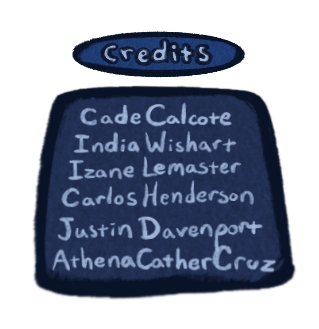 Credits
Cade Calcote
India Wishart
Izane Lemaster
Carlos Henderson
Justin Davenport
Athena Cather Cruz